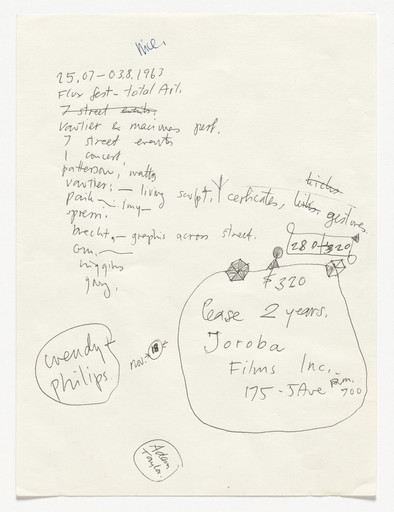 Nice.
25.07-03.8.1963
Flux fest-total Art.
7 street events.
Vautier & maciunas perf.
7 street events
1 concert.
patterson, watts
vautier: — living sculpt. certicates, licks. gestures.
Paik
spoerri
brecht, — graphis across street.
higgins
280-320
F 320
Lease 2 years.
Joroba
Films Inc.
175-5Ave Rm. 700
wendy +
philips.
nov. 18
Adam
Taylor.